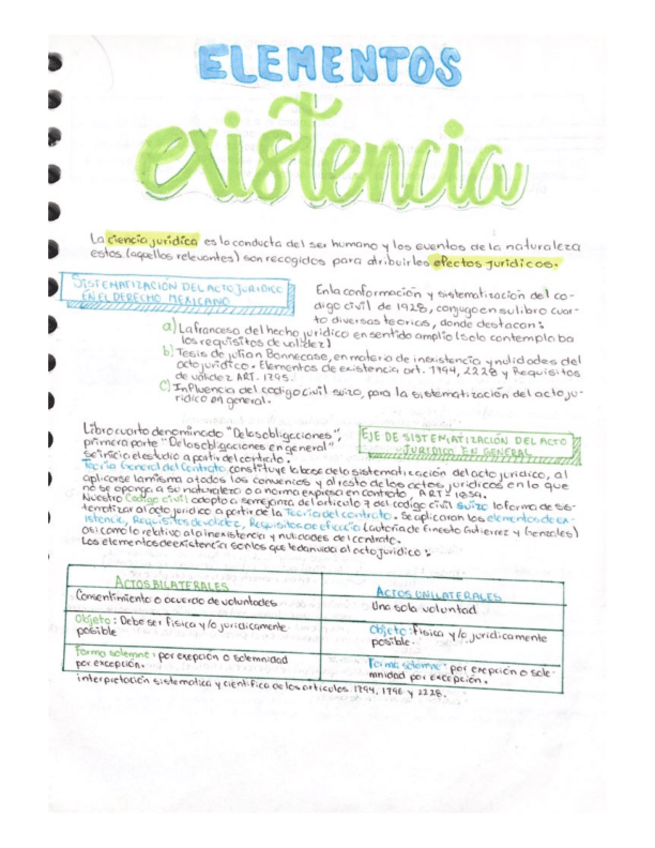 ELEMENTOS
existencia
La ciencia jurídica es la conducta del ser humano y los eventos de la naturaleza
estos (aquellos relevantes) son recogidos para atribuirles efectos jurídicos.
SISTEMATIZACIÓN DEL ACTO JURÍDICO
EN EL DERECHO MEXICANO
En la conformación y sistematización del co-
digo civil de 1928, conjugo en su libro cuar-
to diversas teorias, donde destacan:
a) La francesa del hecho jurídico en sentido amplio (solo contemplaba
los requisitos de validez)
b) Tesis de julian Bonnecase, en materia de inexistencia y nulidades del
acto jurídico. Elementos de existencia art. 1794, 2228 y Requisitos
de válidez ART. 1795.
c) Influencia del codigo civil suizo, para la sistematización del acto ju-
ridico en general.
Libro cuarto denominado "De las obligaciones",
primera parte "De las obligaciones en general"
se inicia el estudio a partir del contrato.
EJE DE SISTEMATIZACIÓN DEL ACTO
JURIDICO EN GENERAL
Teoría General del Contrato constituye la base de la sistematización del acto jurídico, al
aplicarse la misma a todos los convenios y al resto de los actos jurídicos en lo que
no se oponga a su naturaleza o a norma expresa en contrato, ART. 1859.
Nuestro Codigo civil adopto a semejanza del artículo 7 del codigo civil suizo la forma de sis-
tematizar al acto jurídico a partir de la Teoría del contrato. Se aplicaran los elementos de ex-
istencia, Requisitos de validez, Requisitos de eficacia (autoria de Ernesto Gutierrez y Gonzales)
asi como lo relativo a la inexistencia y nulidades del contrato.
Los elementos de existencia son los que le dan vida al acto jurídico:
ACTOS BILATERALES
ACTOS UNILATERALES
Consentimiento o acuerdo de voluntades
Una sola voluntad
Objeto: Debe ser fisica y/o juridicamente
posible
Objeto: fisica y/o juridicamente
posible.
Forma solemne: por exepción o solemnidad
por excepción.
Forma solemne: por excepción o sole-
mnidad por excepción.
interpretación sistematica y cientifica de los articulos 1794, 1796 y 2228.